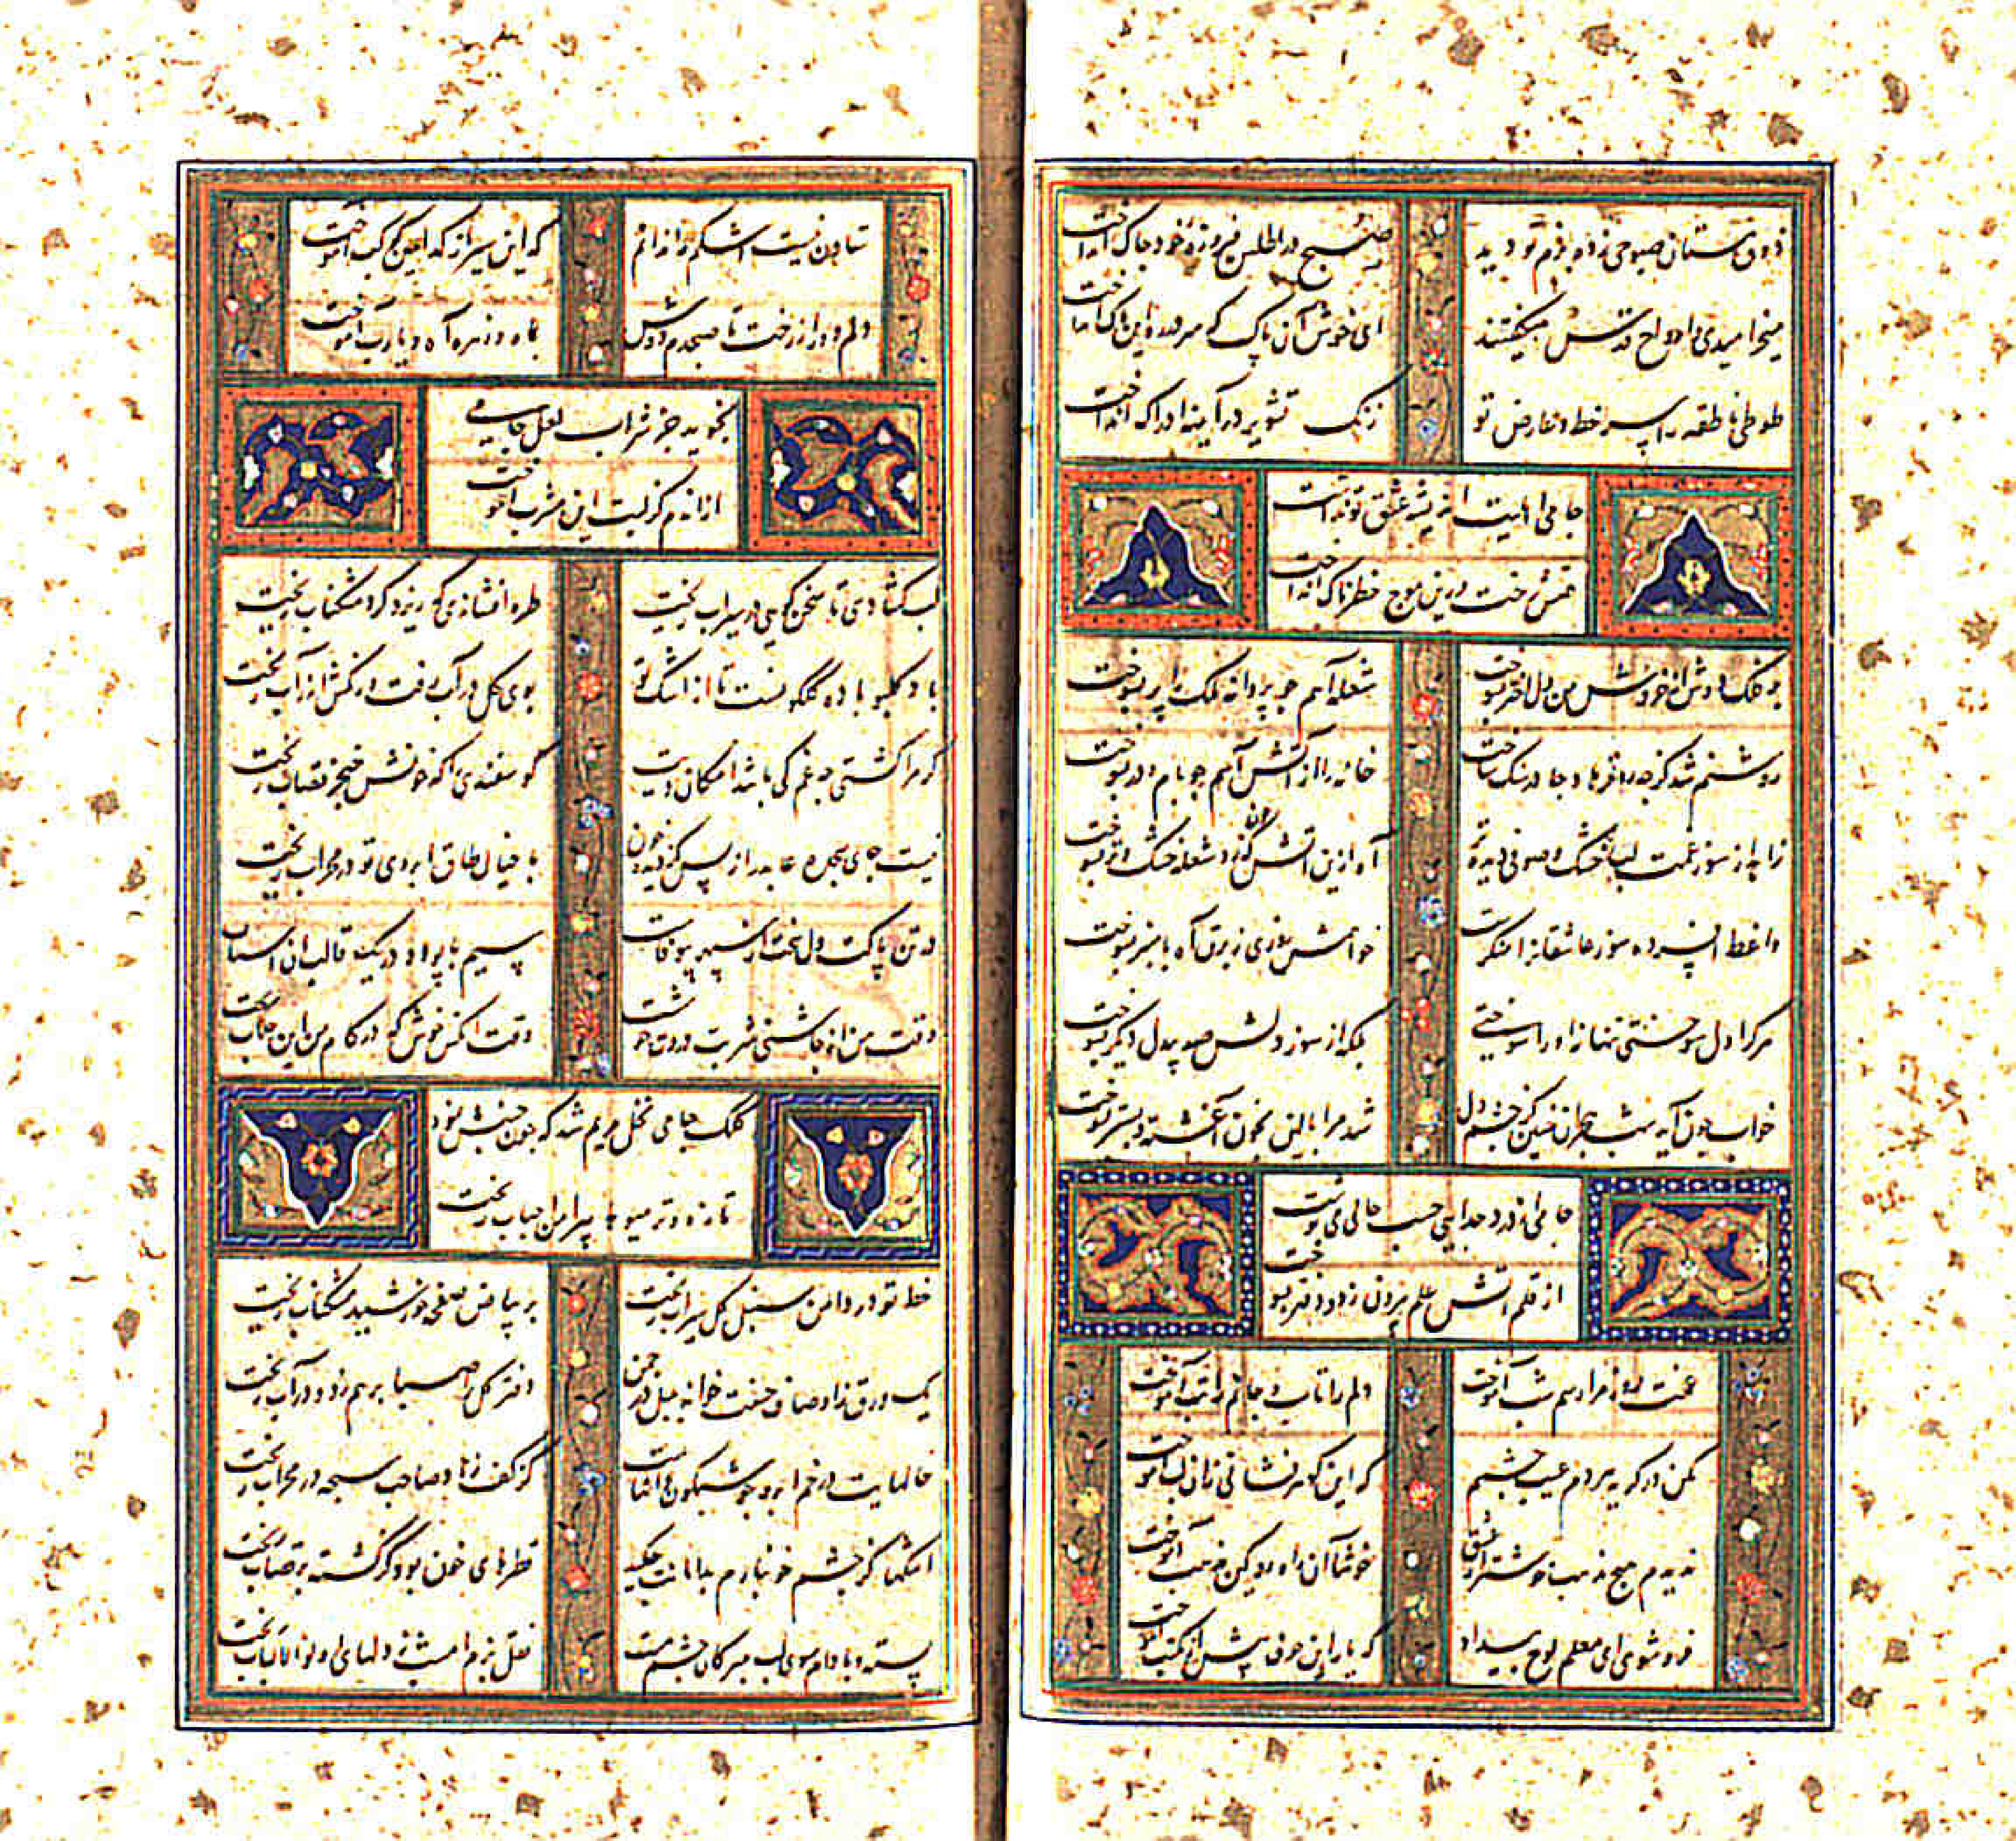 ذوق مستان صبوحی زده بزم تو دید
صبح در اطلس فیروزه خود چاک انداخت
میخرامیدی و ارواح قدس میگفتند
ای خوش آن پاک که سر در ره این پاک انداخت
طوطی ناطقه را پر خط و عارض تو
زنگ تشویر در آیینه ادراک انداخت
جامی اهلیت اندیشه عشق تو نداشت
خت درین موج خطرناک انداخت
بر فلک دوش از خروش من دل اختر بسوخت
شعله آهم چو پروانه ملک را پر بسوخت
روشنم شد کز چه رو فرهاد جا در سنگ ساخت
خانه را از آتش آهم چو بام و در بسوخت
زاهد از سوز غمت لب خشک و صوفی دیده تر
آه ازین آتش کزو در شعله خشک و تر بسوخت
واعظ افسرده سوز عاشقان را منکرست
خواهمش روزی ز برق آه با منبر بسوخت
هر کرا دل سوختی تنها نه او را سوختی
بلکه از سوز دلش صد بیدل دیگر بسوخت
خواب چون آید شب هجران چنین کز چشم و دل
شد مرا بالین بخون آغشته و بستر بسوخت
جامی از درد جدایی حسب حالی می نوشت
از قلم آتش علم بیرون زد و دفتر بسوخت
غمت روز مرا رسم شب آموخت
دلم را تاب و جانم را تب آموخت
مکن در گریه مردم عیب چشمم
که این گوهر فشانی زان لب آموخت
ندیدم هیچ مذهب خوشتر از عشق
خوشا آن راه رو کین مذهب آموخت
فرو شوی ای معلم لوح بیداد
که یار این حرف پیش از مکتب آموخت
تهاون نیست اشکم را ندانم
که این سیر از کدامین کوکب آموخت
دلم دور از رخت تا صبحدم دوش
بماه و زهره آه و یارب آموخت
نجوید جز شراب لعل جامی
از اندم کز لبت این مشرب آموخت
لب گشادی تا سخن گویی در سیراب ریخت
طره افشاندی که ریزد گرد مشکناب ریخت
باد گلبو باده گلگونست تا از اشک تو
بوی گل در آب رفت و رنگش از آب ریخت
گر مرا کشتی چه غم کی باشد امکان دیت
گوسفندی را که خونش خنجر قصاب ریخت
نیست جوی سجده عابد را ز بس کز دیده خون
با خیال طاق ابروی تو در محراب ریخت
در تن پاکت دل سخت از سپهر بیوفاست
سیم با پولاد در یک قالب آن
وقت من از چاشنی شربت دردت خوشست
وقت آنکس خوش که در کام من این جلاب ریخت
کلک جامی نخل مریم شد که چون جنبش نمود
تازه و تر میوه ها پیرامن احباب ریخت
خط تو در دامن سنبل گل سیراب ریخت
بر بیاض صفحه خورشید مشکناب ریخت
یک ورق زاوصاف حسنت خواند بلبل در چمن
دفتر گل را صبا بر هم زد و در آب ریخت
خالهایت در خم ابرو چو شبگون دانهاست
کز کف زهاد صاحب سبحه در محراب ریخت
اشکها کز چشم خونبارم بدامانت چکید
قطرهای خون بود کز کشته بر قصاب ریخت
پسته و بادام سوی لب مبر کان چشم مست
نقل بزم امشب ز دلهای اولوالالباب ریخت